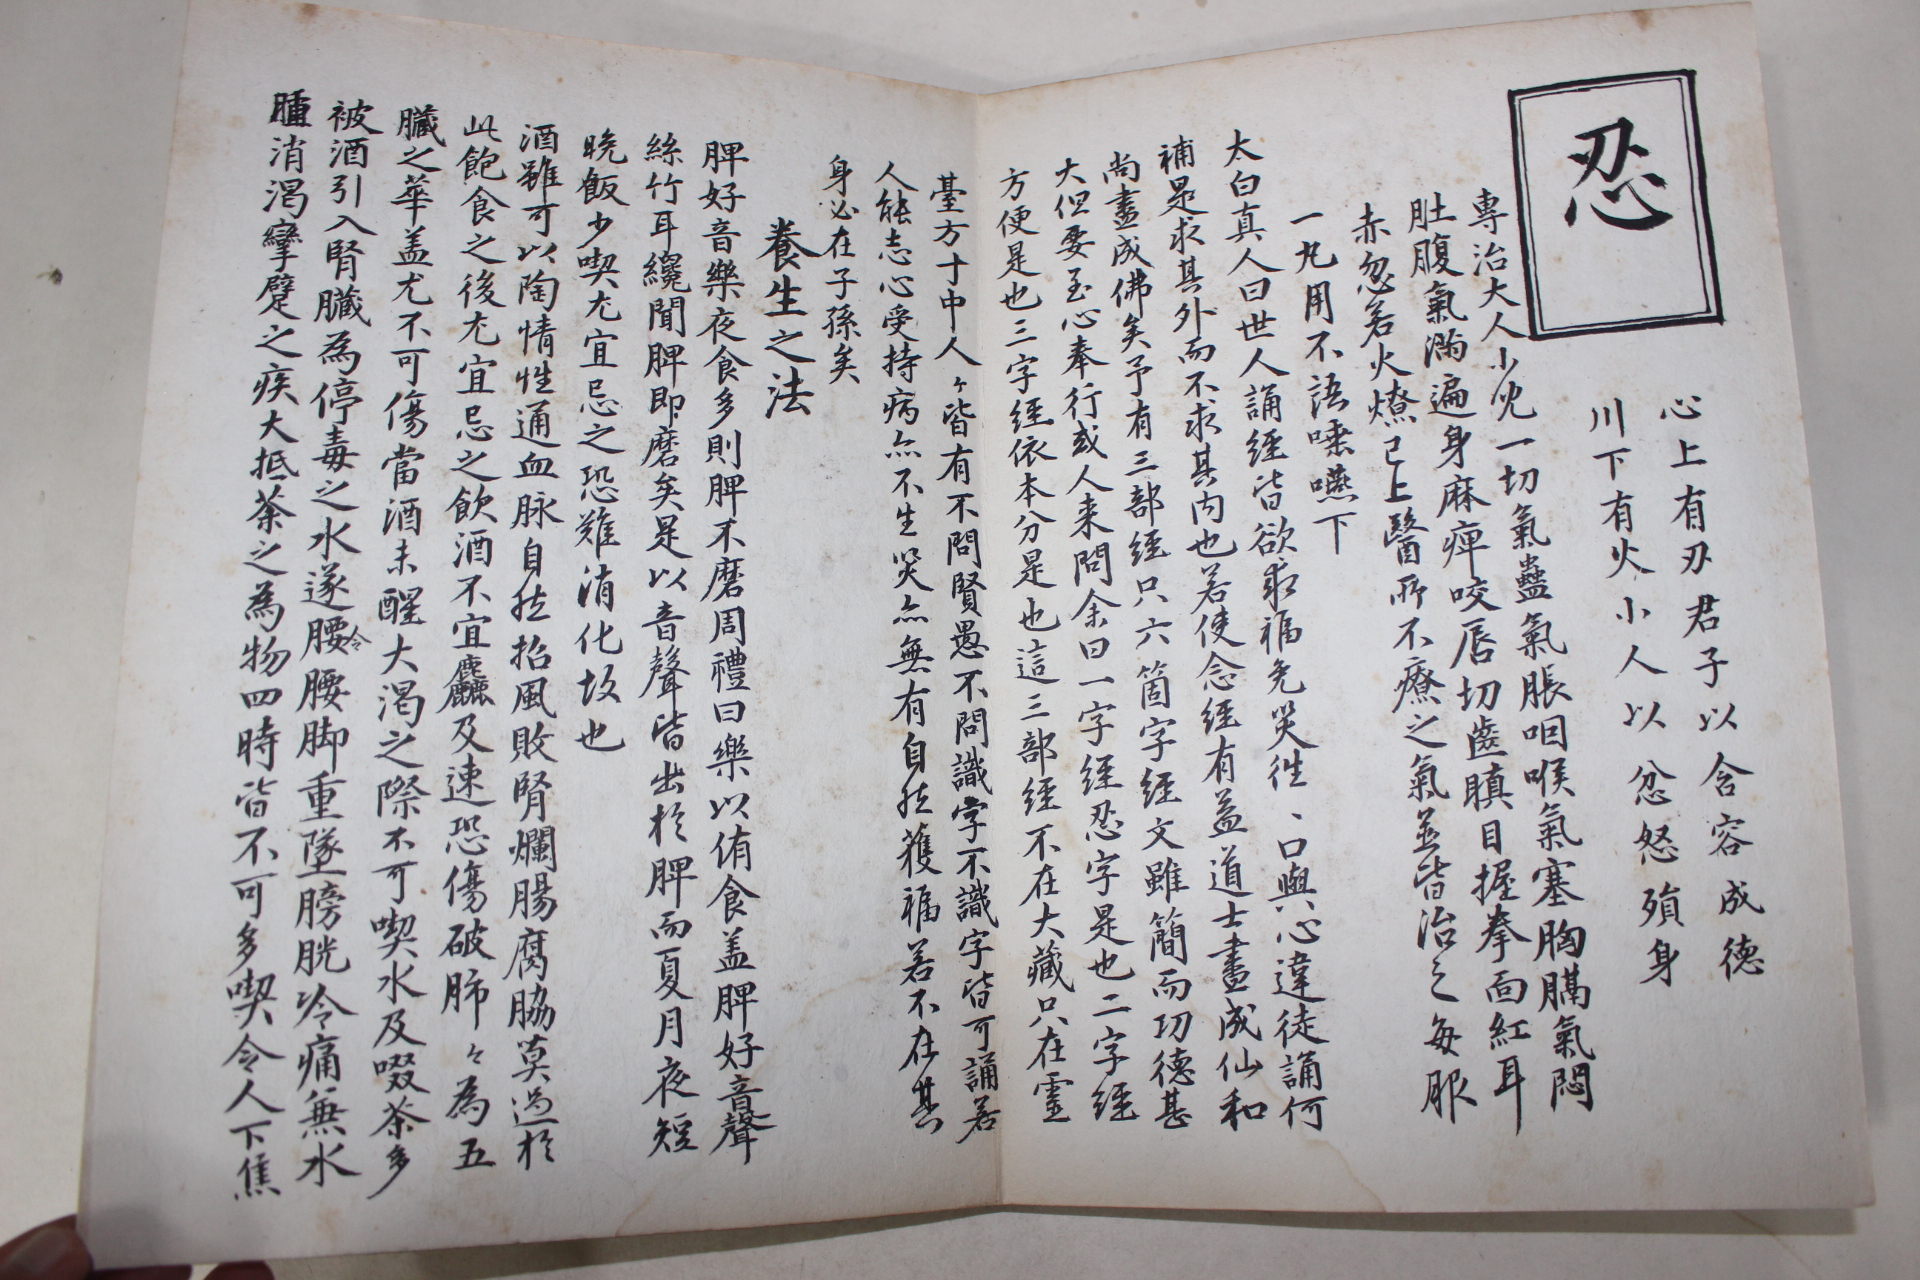 忍
心上有刃君子以含容成德
川下有火小人以忿怒殞身
專治大人小兒一切氣蠱氣脹咽喉氣塞胸膈氣悶
肚腹氣滿遍身麻痺咬唇切齒瞋目握拳面紅耳
赤忽若火燎已上醫所不療之氣並皆治之每服
一丸用不語唾嚥下
太白真人曰世人誦經皆欲求福免災徃〻口與心違徒誦何
補是求其外而不求其內也若使念經有益道士盡成仙和
尚盡成佛矣予有三部經只六箇字經文雖簡而功德甚
大但要至心奉行或人来問余曰一字經忍字是也二字經
方便是也三字經依本分是也這三部經不在大藏只在靈
臺方寸中人〻皆有不問賢愚不問識字不識字皆可誦若
人能志心受持病亦不生災亦無有自然獲福若不在其
身必在子孫矣
養生之法
脾好音樂夜食多則脾不磨周禮曰樂以侑食盖脾好音聲
絲竹耳纔聞脾即磨矣是以音聲皆出於脾而夏月夜短
晩飯少喫尤宜忌之恐難消化故也
酒雖可以陶情性通血脉自然招風敗腎爛腸腐脇莫過於
此飽食之後尤宜忌之飲酒不宜麤及速恐傷破肺〻為五
臟之華盖尤不可傷當酒未醒大渴之際不可喫水及啜茶多
被酒引入腎臟為停毒之水遂腰令腰脚重墜膀胱冷痛無水
腫消渴攣躄之疾大抵茶之為物四時皆不可多喫令人下焦